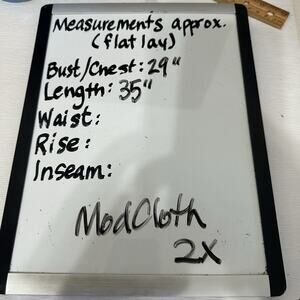 Measurements approx.
(flat lay)
Bust/Chest: 29"
Length: 35"
Waist:
Rise:
Inseam:
ModCloth
2X